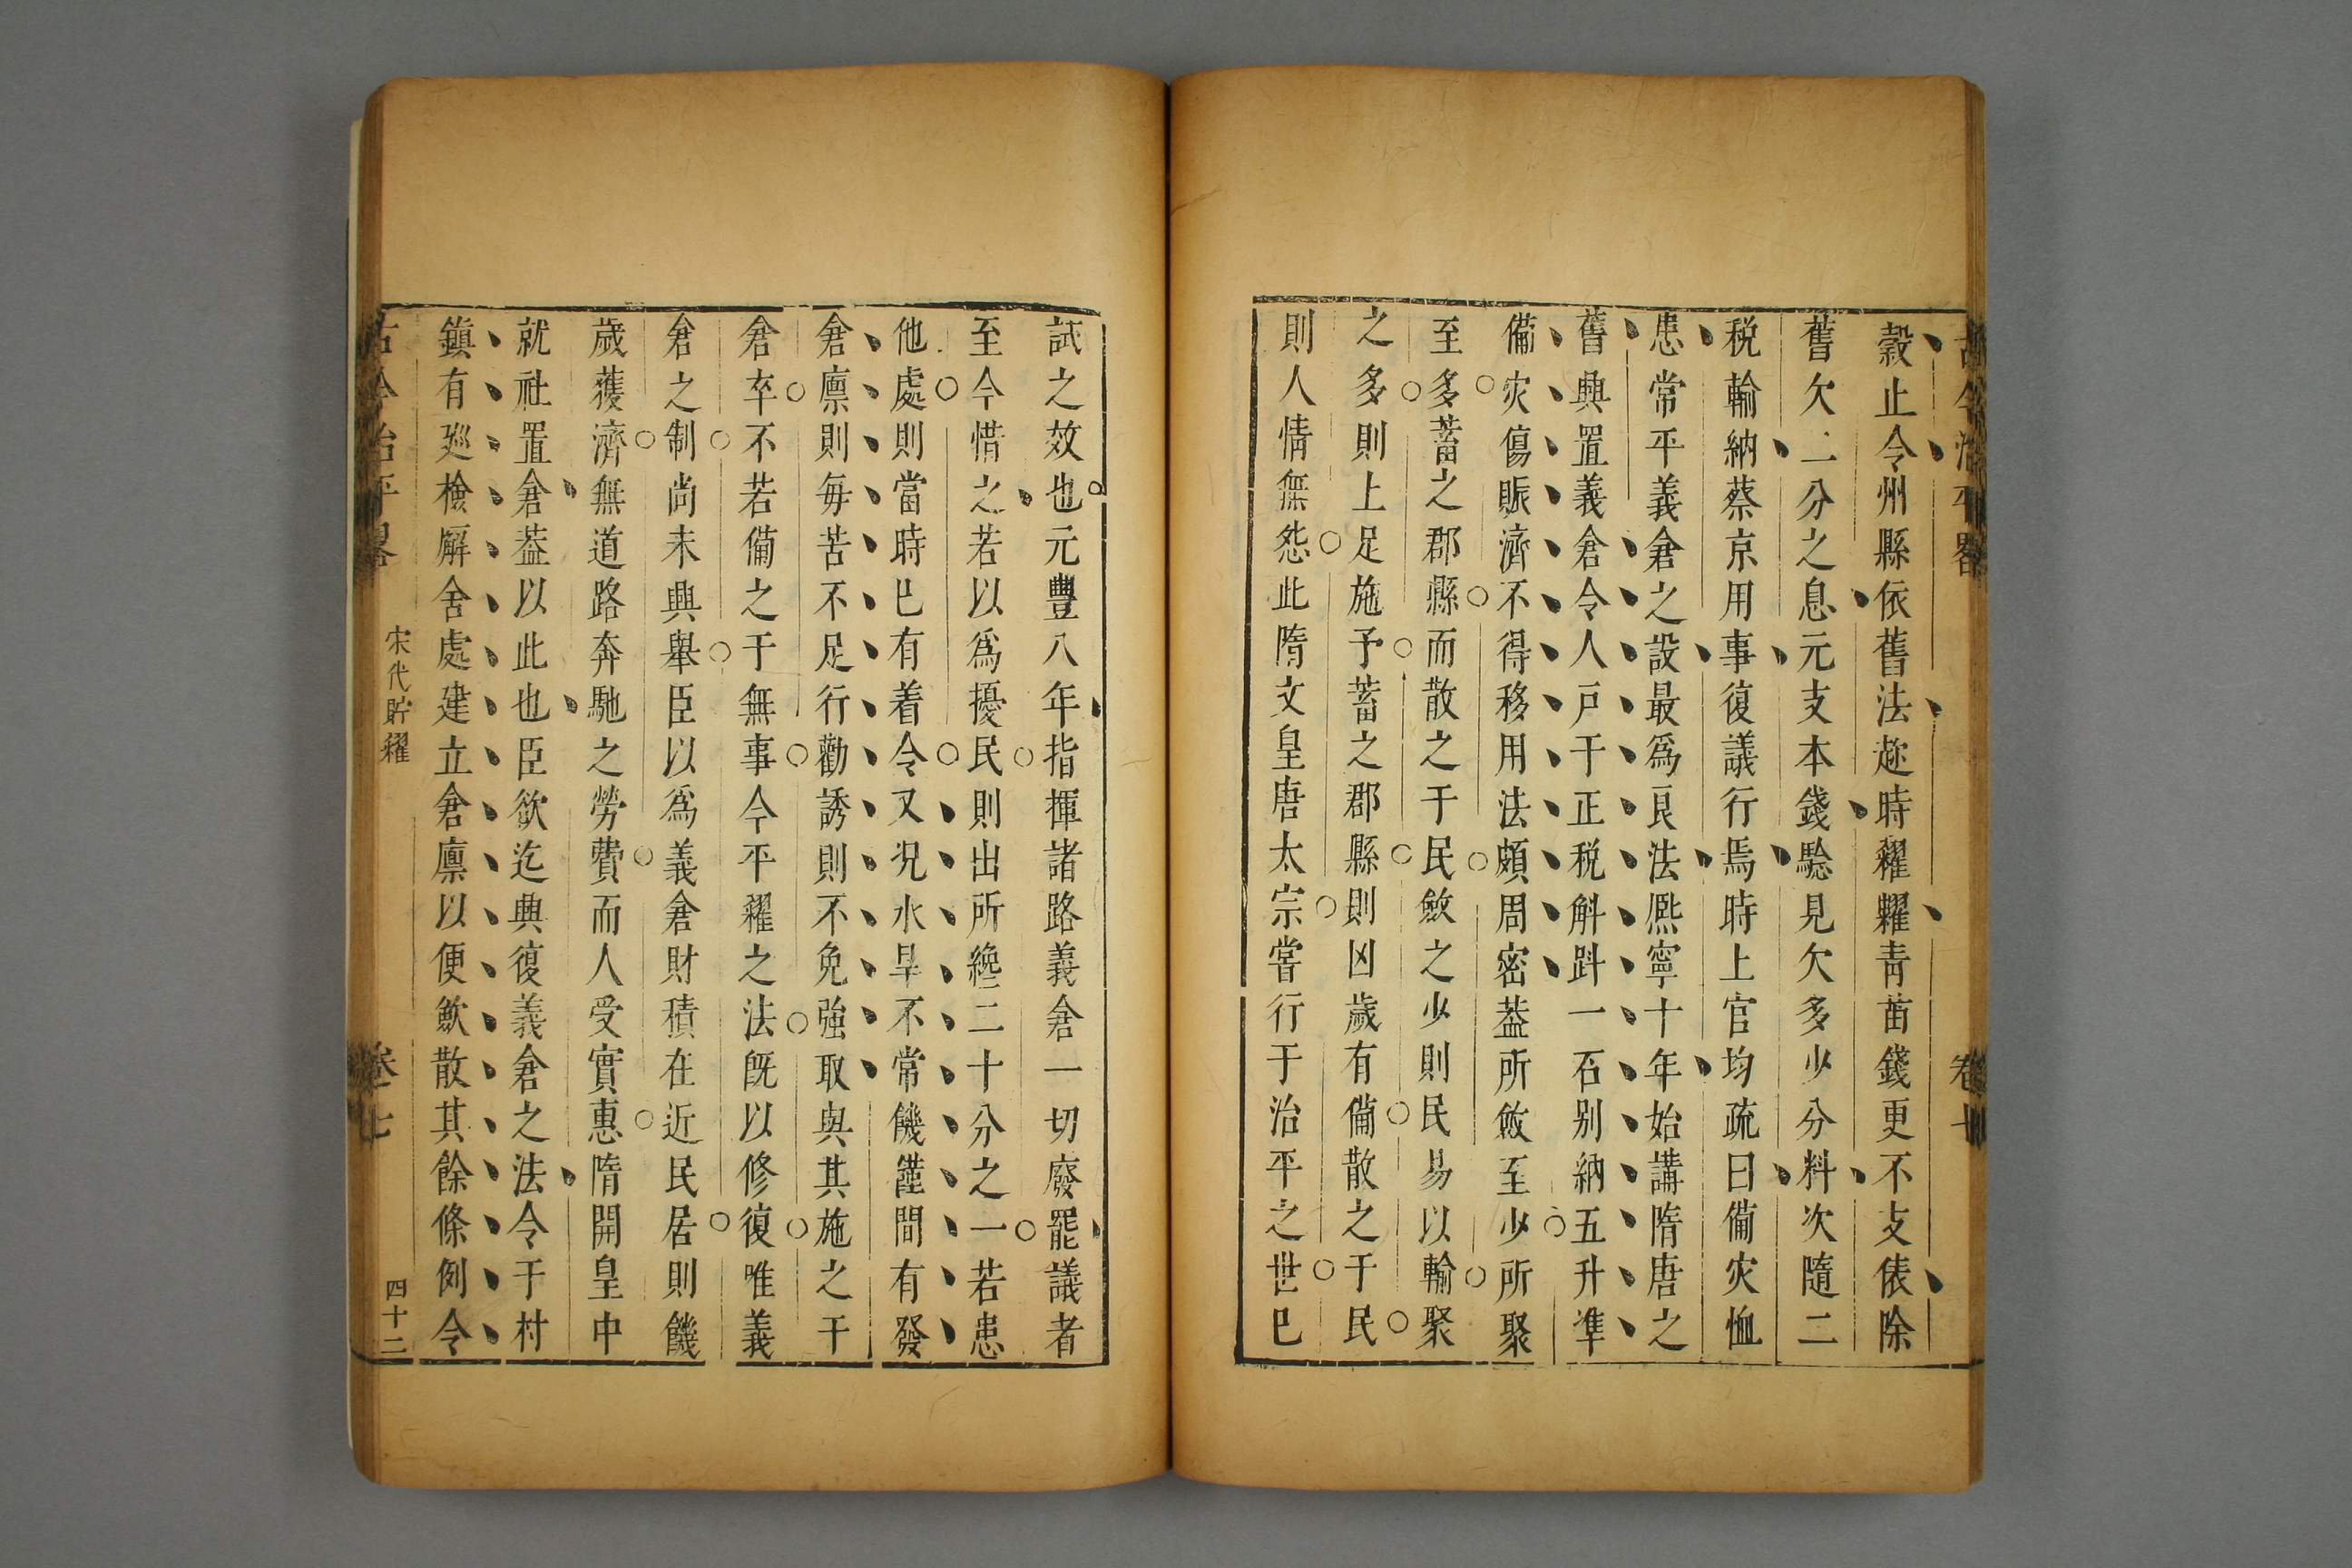 古今治平畧
卷七
糓止令州縣依舊法趂時糴糶青苗錢更不支俵除
舊欠二分之息元支本錢驗見欠多少分料次隨二
税輸納蔡京用事復議行焉時上官均疏曰備灾恤
患常平義倉之設最爲良法熈寧十年始講隋唐之
舊興置義倉令人戸于正税斛㪷一石别納五升準
備灾傷賑濟不得移用法頗周密葢所斂至少所聚
至多蓄之郡縣而散之于民斂之少則民易以輸聚
之多則上足施予蓄之郡縣則凶歲有備散之于民
則人情無怨此隋文皇唐太宗嘗行于治平之世巳
試之效也元豐八年指揮諸路義倉一切廢罷議者
至今惜之若以爲擾民則出所纔二十分之一若患
他處則當時巳有着令又况水旱不常饑饉間有發
倉廪則毎苦不足行勸誘則不免強取與其施之于
倉卒不若備之于無事今平糴之法旣以修復唯義
倉之制尚未興舉臣以爲義倉財積在近民居則饑
歲獲濟無道路奔馳之勞費而人受實惠隋開皇中
就社置倉葢以此也臣欲迄興復義倉之法令于村
鎮有廵檢廨舍處建立倉廪以便斂散其餘條例令
古今治平畧
宋代貯糴
卷七
四十二